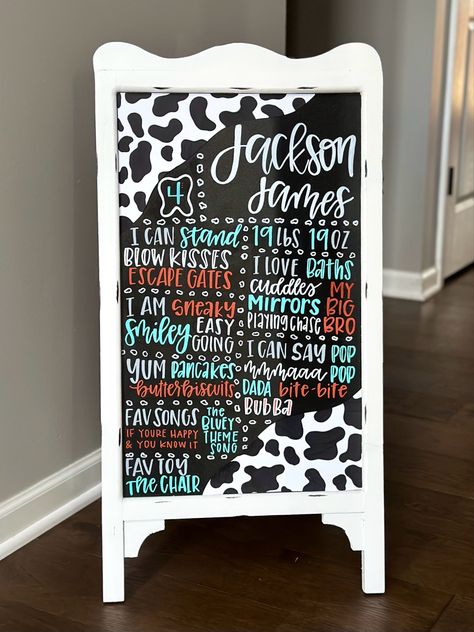 Jackson
James
4
I CAN Stand
BLOW KISSES
ESCAPE GATES
19 lbs 19 oz
I LOVE Baths
cuddles MY
MIRRORS BIG
PLAYING CHASE BRO
I AM sneaky
Smiley EASY
GOING
I CAN SAY POP
mmmaaa POP
DADA bite-bite
BUBBA
YUM PANCAKES
butterbiscuits
FAV SONGS
IF YOURE HAPPY
& YOU KNOW IT
THE
BLUEY
THEME
SONG
FAV TOY
THE CHAIR